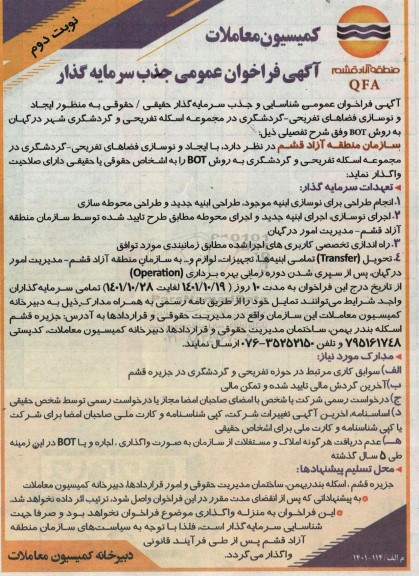 نوبت دوم
کمیسیون معاملات
آگهی فراخوان عمومی جذب سرمایه گذار
منطقه آزاد قشم
QFA
آگهی فراخوان عمومی شناسایی و جذب سرمایه‌گذار حقیقی / حقوقی به منظور ایجاد
و نوسازی فضاهای تفریحی-گردشگری در مجموعه اسکله تفریحی و گردشگری شهر درگهان
به روش BOT وفق شرح تفصیلی ذیل:
سازمان منطقه آزاد قشم در نظر دارد، با ایجاد و نوسازی فضاهای تفریحی-گردشگری در
مجموعه اسکله تفریحی و گردشگری به روش BOT را به اشخاص حقوقی یا حقیقی دارای صلاحیت
واگذار نماید:
تعهدات سرمایه گذار:
۱. انجام طراحی برای نوسازی ابنیه موجود، طراحی ابنیه جدید و طراحی محوطه سازی
۲. اجرای نوسازی، اجرای ابنیه جدید و اجرای محوطه مطابق طرح تایید شده توسط سازمان منطقه
آزاد قشم - مدیریت امور درگهان
۳. راه اندازی تخصصی کاربری های اجرا شده مطابق زمانبندی مورد توافق
۴. تحویل (Transfer) تمامی ابنیه‌ها، تجهیزات، لوازم و.. به سازمان منطقه آزاد قشم - مدیریت امور
درگهان، پس از سپری شدن دوره زمانی بهره برداری (Operation)
از تاریخ درج این فراخوان به مدت ۱۰ روز ( ۱۴۰۱/۱۰/۱۹ لغایت ۱۴۰۱/۱۰/۲۸) تمامی سرمایه‌گذاران
واجد شرایط می‌توانند تمایل خود را از طریق نامه رسمی به همراه مدارک ذیل به دبیرخانه
کمیسیون معاملات این سازمان واقع در مدیریت حقوقی و قراردادها به آدرس: جزیره قشم
اسکله بندر بهمن، ساختمان مدیریت حقوقی و قراردادها، دبیرخانه کمیسیون معاملات، کدپستی
۷۹۵۱۶۱۷۴۸ و تلفن ۳۵۲۵۲۱۵۰-۰۷۶ ارسال نمایند.
مدارک مورد نیاز:
الف) سوابق کاری مرتبط در حوزه تفریحی و گردشگری در جزیره قشم
ب) آخرین گردش مالی تایید شده و تمکن مالی
ج) درخواست رسمی شرکت یا شخص با امضای صاحبان امضا مجاز یا درخواست رسمی توسط شخص حقیقی
د) اساسنامه، آخرین آگهی تغییرات شرکت، کپی شناسنامه و کارت ملی صاحبان امضا برای شرکت
یا کپی شناسنامه و کارت ملی برای اشخاص حقیقی
هـ) عدم دریافت هر گونه املاک و مستغلات از سازمان به صورت واگذاری ، اجاره و یا BOT در این زمینه
طی ۵ سال گذشته
محل تسلیم پیشنهادها:
جزیره قشم ، اسکله بندر بهمن، ساختمان مدیریت حقوقی و امور قراردادها، دبیرخانه کمیسیون معاملات
به پیشنهاداتی که پس از انقضای مدت مقرر در این فراخوان واصل شود، ترتیب اثر داده نخواهد شد.
این فراخوان به منزله واگذاری موضوع فراخوان نخواهد بود و صرفا جهت
شناسایی سرمایه گذار است، فلذا با توجه به سیاست‌های سازمان منطقه
آزاد قشم پس از طی فرآیند قانونی
واگذار می‌گردد.
دبیرخانه کمیسیون معاملات
م الف/ ۱۱۴-۱۴۰۱